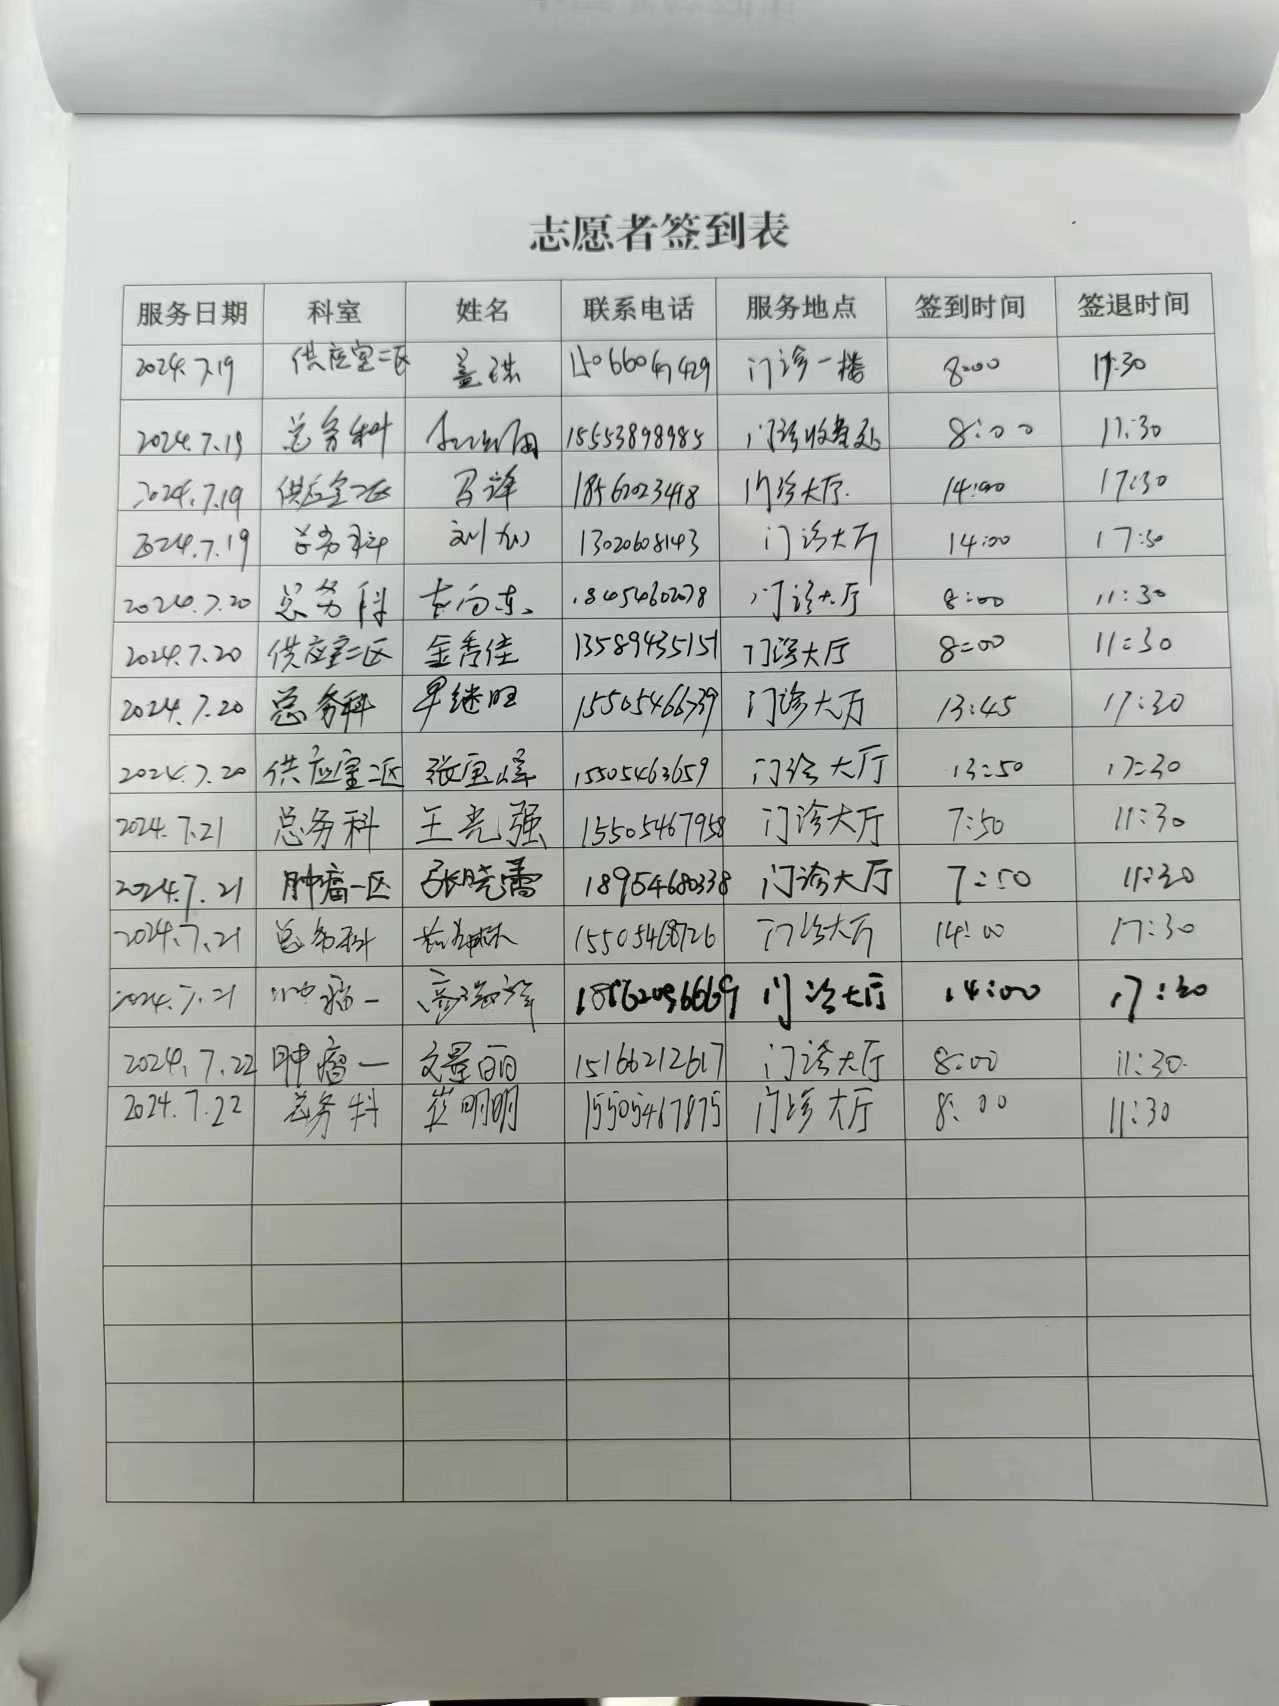 志愿者签到表
服务日期 科室 姓名 联系电话 服务地点 签到时间 签退时间
2024.7.19 供应室二区 盖琪 15066047429 门诊一楼 8:00 11:30
2024.7.19 总务科 15553898985 门诊收费处 8:00 11:30
2024.7.19 供应室二区 马泽 18562023418 门诊大厅 14:00 17:30
2024.7.19 总务科 刘 13020608143 门诊大厅 14:00 17:30
2024.7.20 总务科 18454602078 门诊大厅 8:00 11:30
2024.7.20 供应室二区 金秀佳 13589435151 门诊大厅 8:00 11:30
2024.7.20 总务科 门诊大厅 13:45 17:30
2024.7.20 供应室二区 张宝峰 15505463659 门诊大厅 13:50 17:30
2024.7.21 总务科 王光强 15505467958 门诊大厅 7:50 11:30
2024.7.21 肿瘤一区 张晓蕾 18954680338 门诊大厅 7:50 11:30
2024.7.21 总务科 15505468726 门诊大厅 14:00 17:30
2024.7.21 肿瘤一 门诊大厅 14:00 17:30
2024.7.22 肿瘤一 文景丽 15166212617 门诊大厅 8:00 11:30
2024.7.22 总务科 崔明明 15505467875 门诊大厅 8:00 11:30